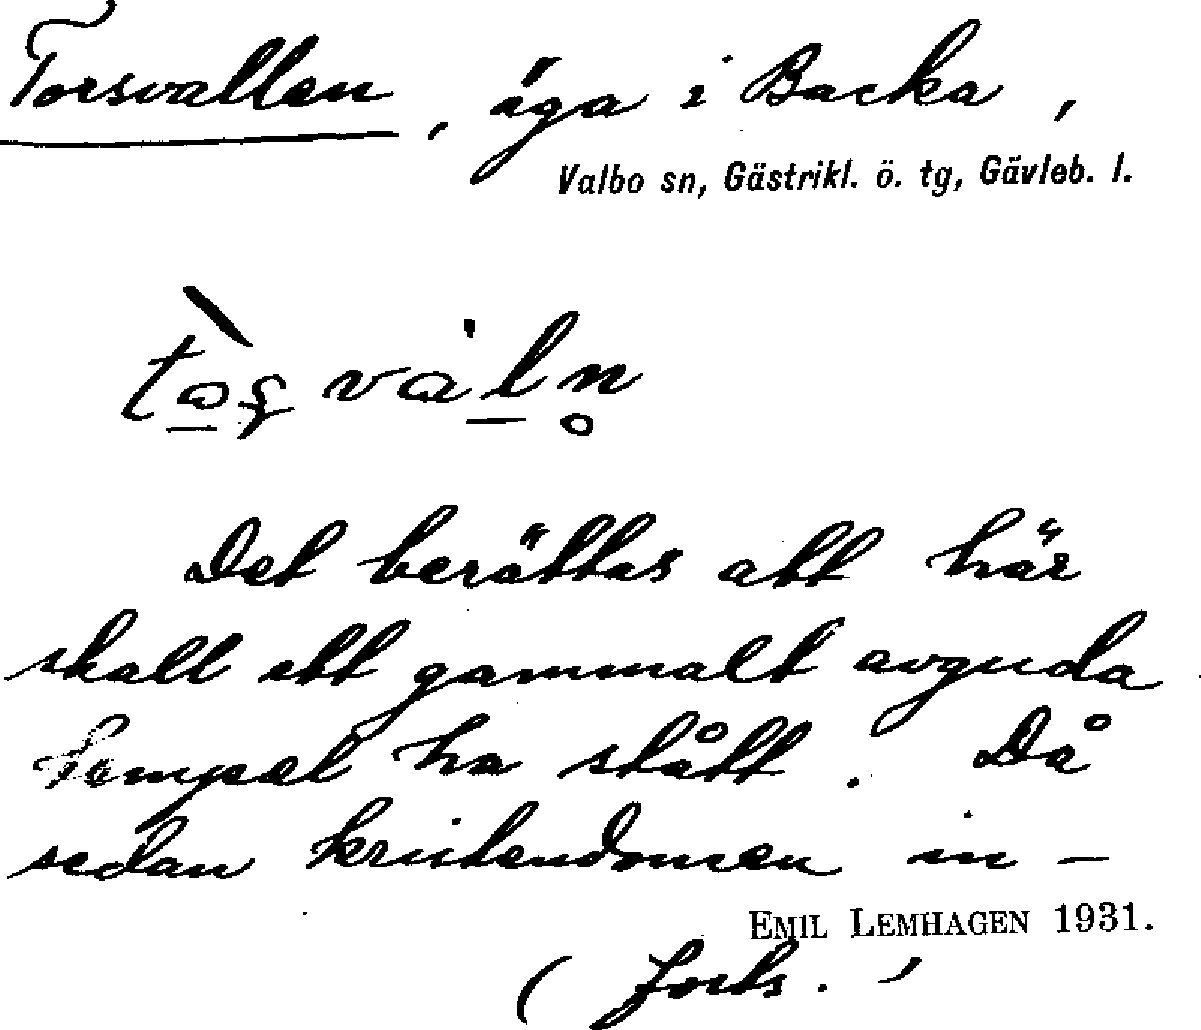 Torsvallen, äga i Backa,
Valbo sn, Gästrikl. ö. tg, Gävleb. l.
Det berättas att här
skall ett gammalt avguda
tempel ha stått. Då
sedan kristendomen in-
EMIL LEMHAGEN 1931.
(forts.)